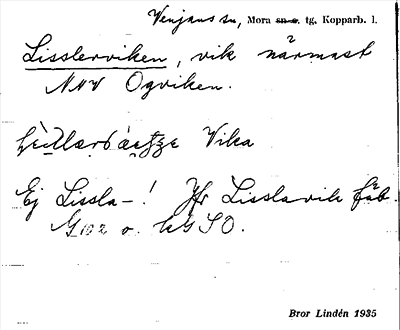 Venjans sn, Mora sn o. tg, Kopparb. l.
Lisslerviken, vik närmast
NNV Ogviken.
Vika
Ej Lissla-! Jfr Lisslavik fäb.
G102 o. kGSO.
Bror Lindén 1935